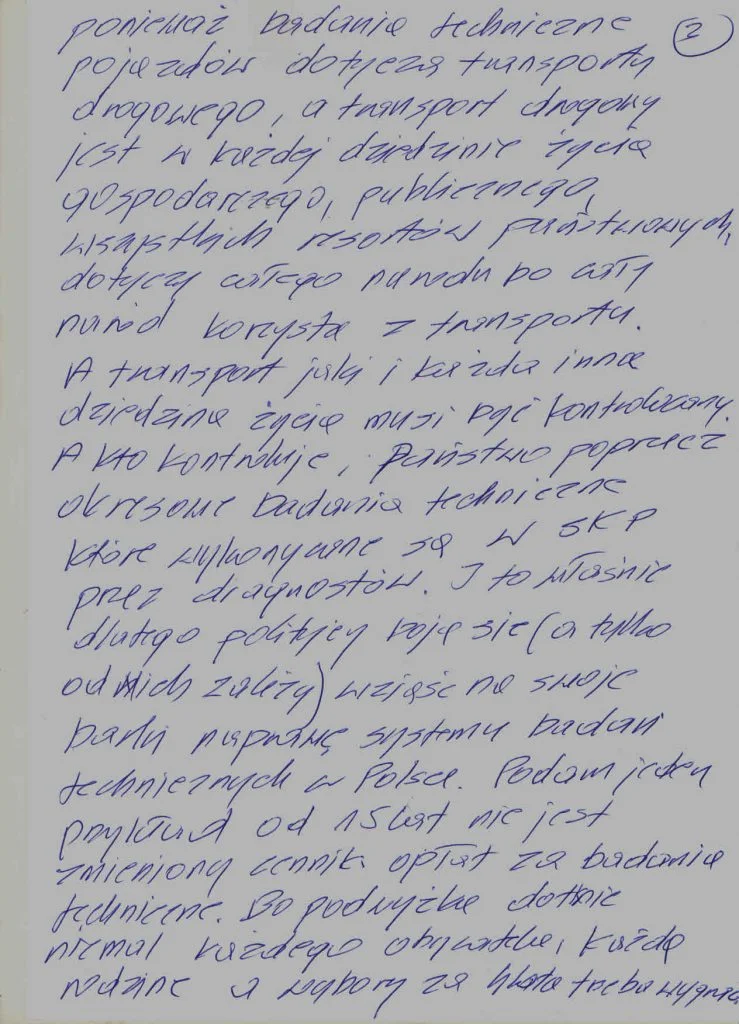 ponieważ badania techniczne 2
pojazdów dotyczą transportu
drogowego, a transport drogowy
jest w każdej dziedzinie życia
gospodarczego, publicznego,
wszystkich resortów państwowych,
dotyczy całego narodu bo cały
naród korzysta z transportu.
A transport jak i każda inna
dziedzina życia musi być kontrolowany.
A kto kontroluje, Państwo poprzez
okresowe badania techniczne
które wykonywane są w SKP
przez diagnostów. I to właśnie
dlatego politycy boją się (a tylko
od nich zależy) wziąść na swoje
barki naprawę systemu badań
technicznych w Polsce. Podam jeden
przykład od 15 lat nie jest
zmieniony cennik opłat za badania
techniczne. Bo podwyżka dotknie
niemal każdego obywatela, każdą
rodzinę a wybory za 4 lata trzeba